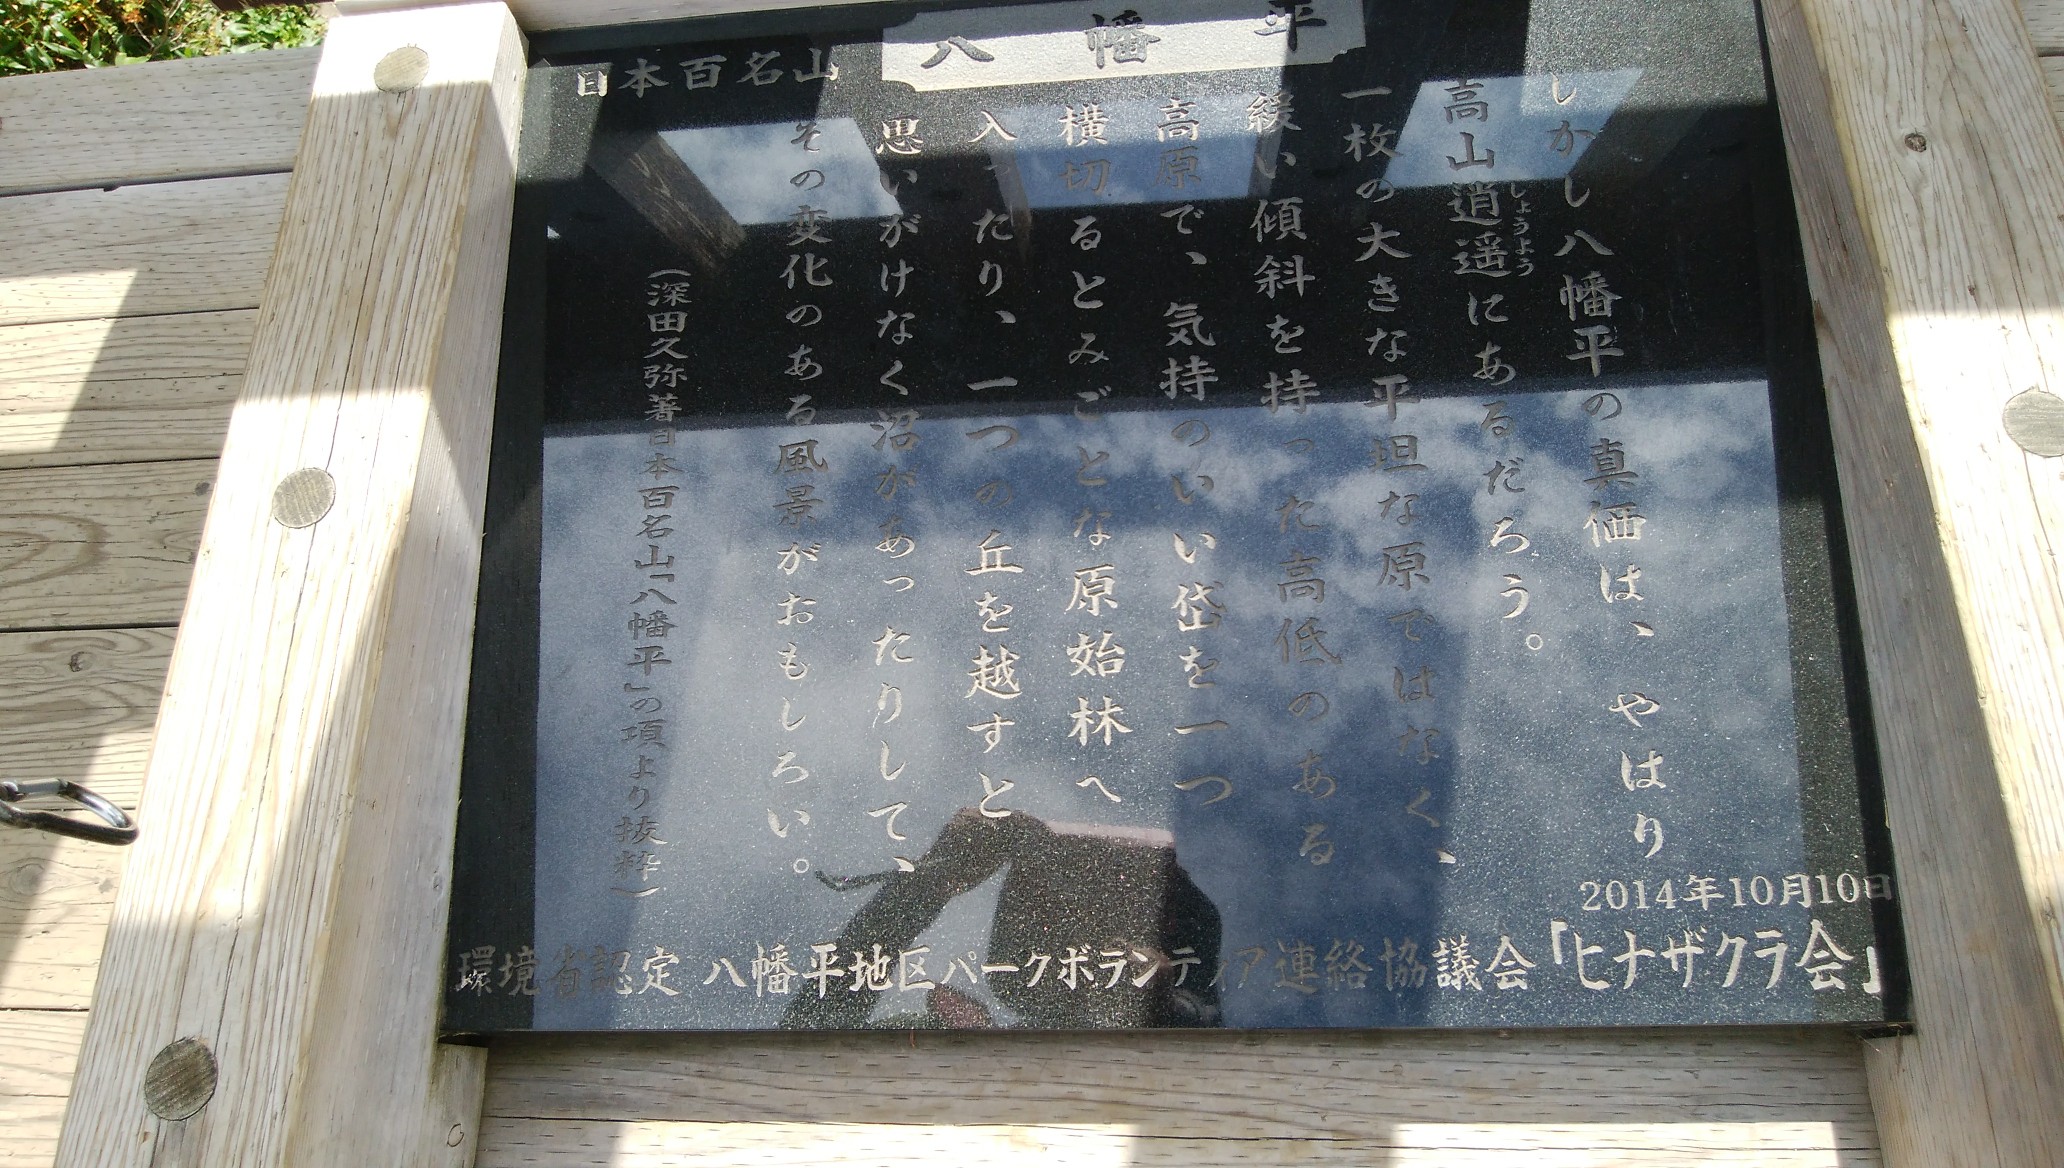 日本百名山
八幡平
しかし八幡平の真価は、やはり
高山逍遥にあるだろう。
しょうよう
一枚の大きな平坦な原ではなく、
緩い傾斜を持った高低のある
高原で、気持のいい岱を一つ
横切るとみごとな原始林へ
入ったり、一つの丘を越すと
思いがけなく沼があったりして、
その変化のある風景がおもしろい。
(深田久弥著日本百名山「八幡平」の項より抜粋)
2014年10月10日
環境省認定 八幡平地区パークボランティア連絡協議会「ヒナザクラ会」